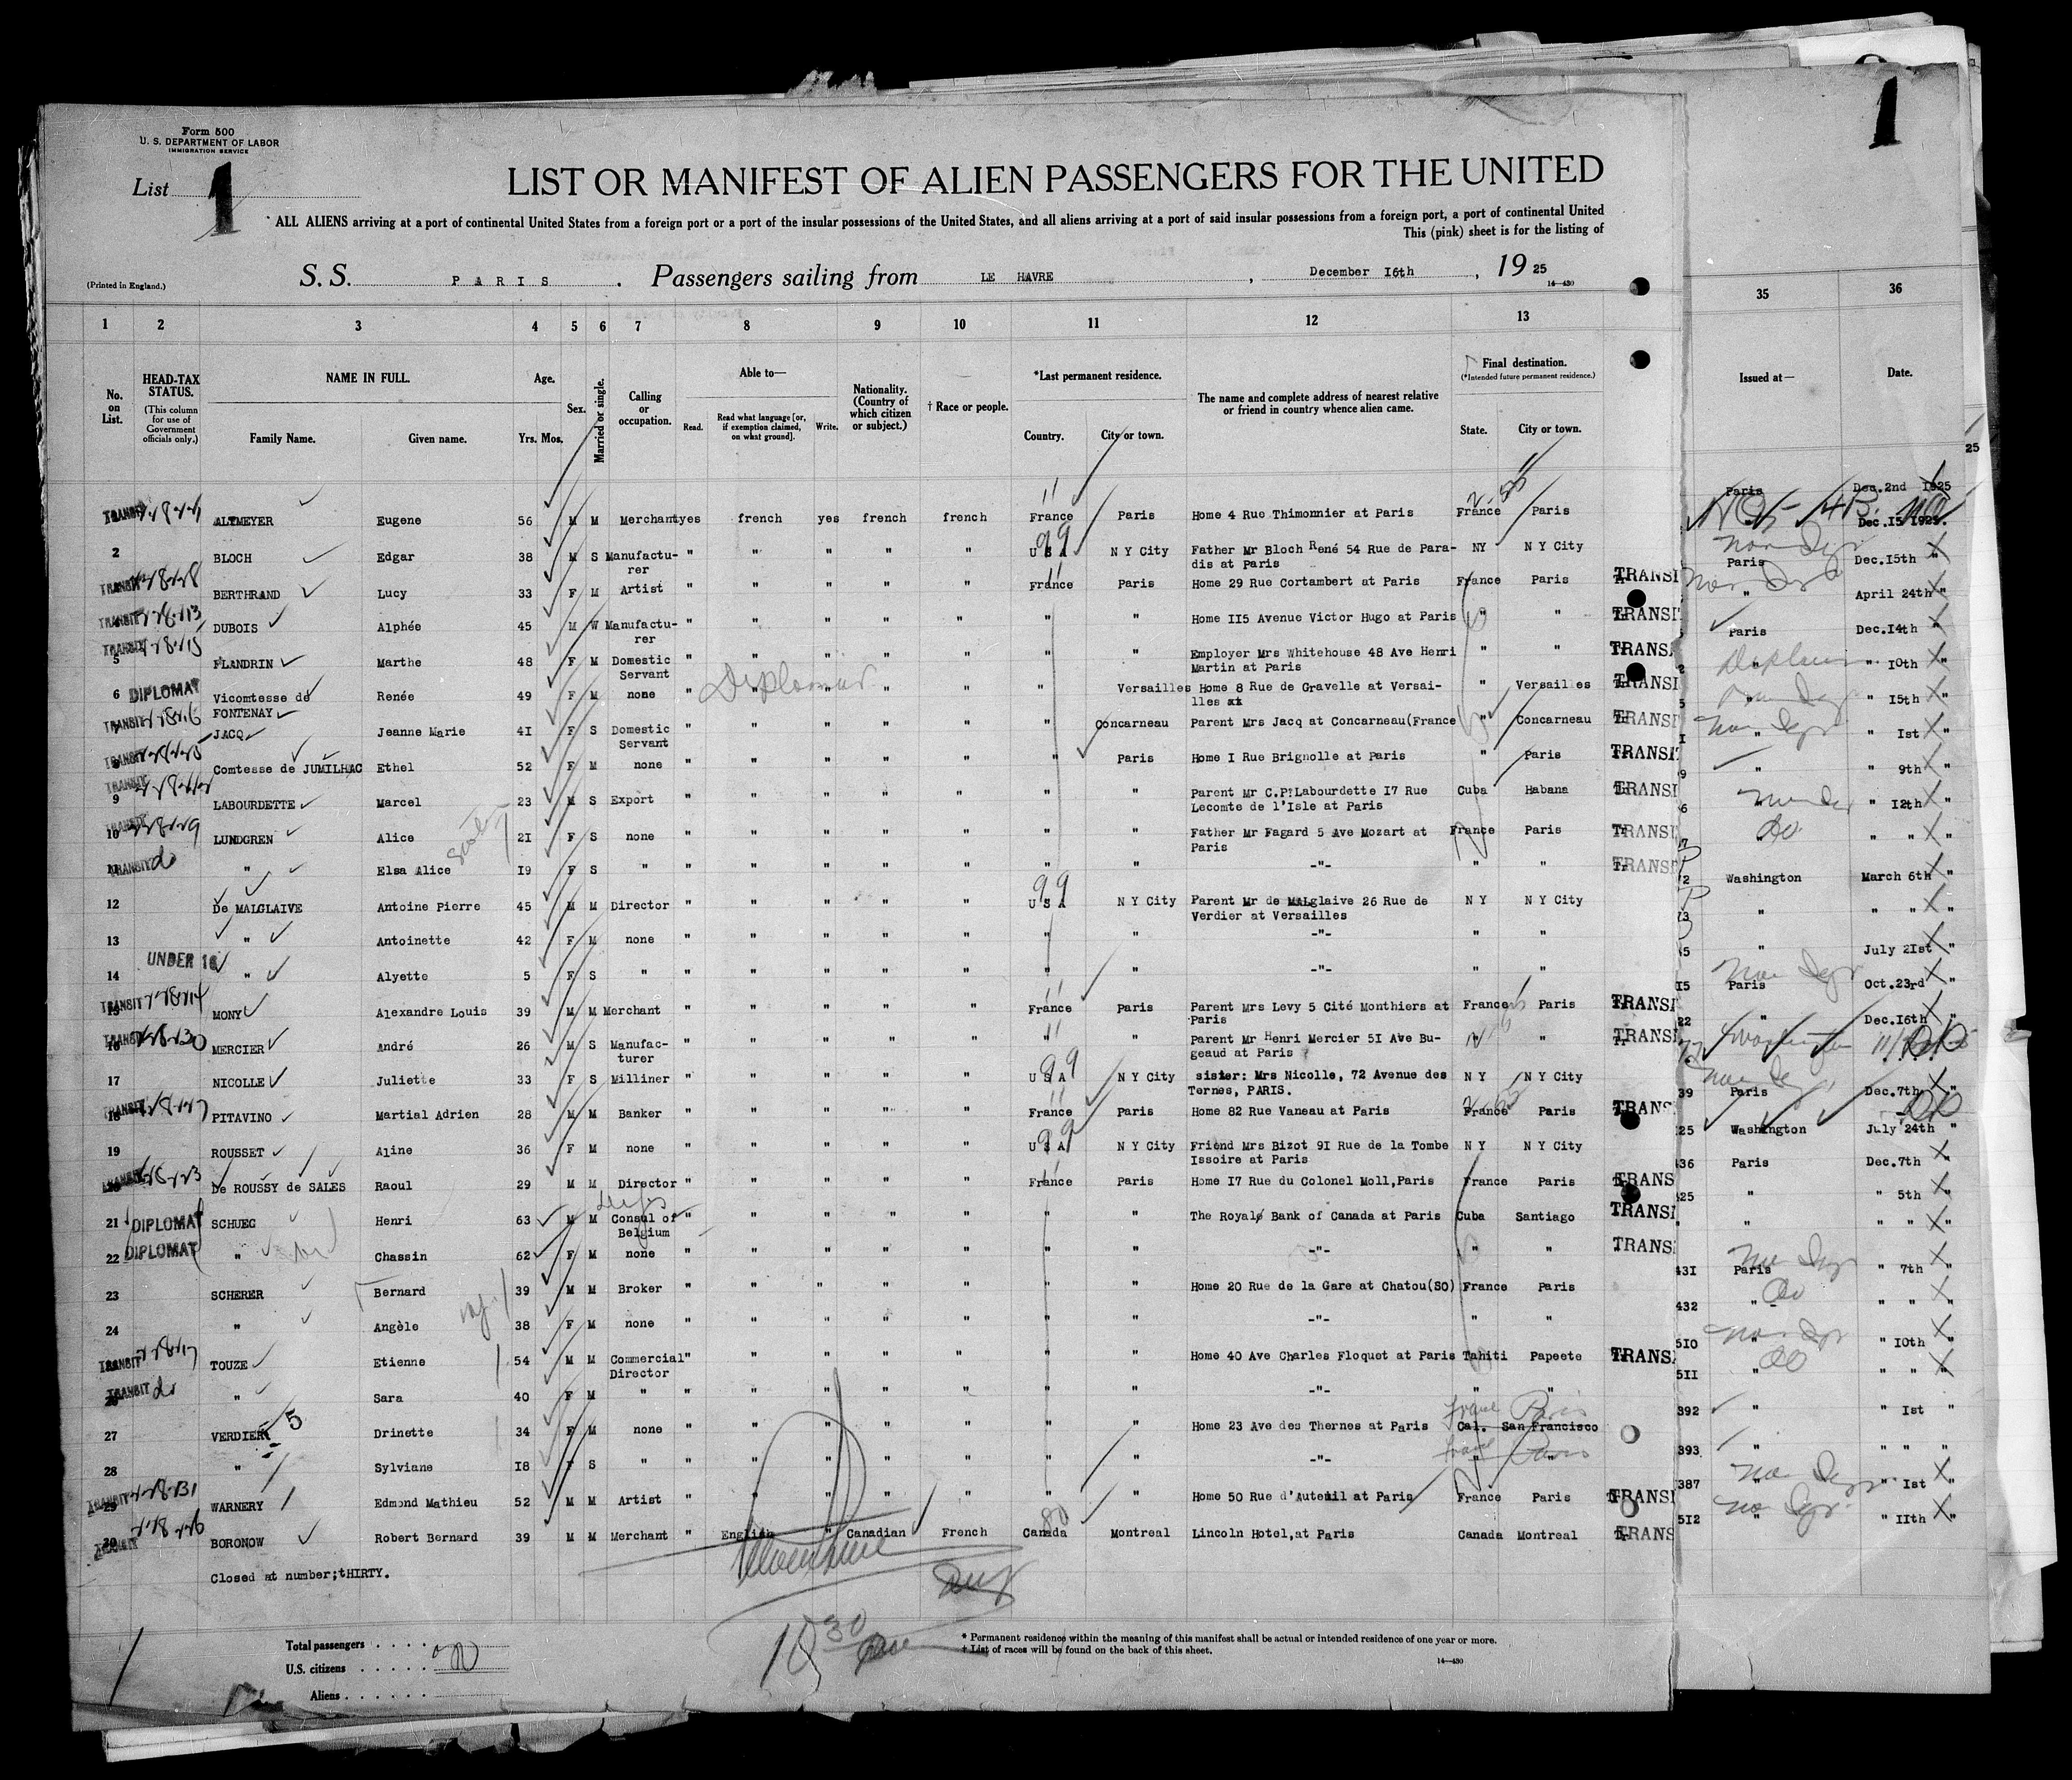 Form 500
U. S. DEPARTMENT OF LABOR
IMMIGRATION SERVICE
List 1
1
LIST OR MANIFEST OF ALIEN PASSENGERS FOR THE UNITED
ALL ALIENS arriving at a port of continental United States from a foreign port or a port of the insular possessions of the United States, and all aliens arriving at a port of said insular possessions from a foreign port, a port of continental United
This (pink) sheet is for the listing of
(Printed in England.)
S. S. PARIS. Passengers sailing from LE HAVRE, December I6th, 19 25
14—430
1 2 3 4 5 6 7 8 9 10 11 12 13 35 36
No. on List.
HEAD-TAX STATUS.
(This column for use of Government officials only.)
NAME IN FULL.
Family Name. Given name.
Age.
Yrs. Mos.
Sex.
Married or single.
Calling or occupation.
Able to—
Read. Read what language [or, if exemption claimed, on what ground]. Write.
Nationality. (Country of which citizen or subject.)
† Race or people.
*Last permanent residence.
Country. City or town.
The name and complete address of nearest relative or friend in country whence alien came.
Final destination.
(*Intended future permanent residence.)
State. City or town.
Issued at—
Date.
25
TRANSIT ALTMEYER Eugene 56 M M Merchant yes french yes french french France Paris Home 4 Rue Thimonnier at Paris France Paris Paris Dec.2nd 1925
Dec.I5 1925.
2 BLOCH Edgar 38 M S Manufactu-rer " " " " " U S A N Y City Father Mr Bloch René 54 Rue de Para-dis at Paris NY N Y City Paris Dec.I5th "
TRANSIT BERTHRAND Lucy 33 F M Artist " " " " " France Paris Home 29 Rue Cortambert at Paris France Paris TRANSI " April 24th "
TRANSIT DUBOIS Alphée 45 M W Manufactu-rer " " " " " " " Home II5 Avenue Victor Hugo at Paris " " TRANSI Paris Dec.I4th "
TRANSIT 5 FLANDRIN Marthe 48 F M Domestic Servant " " " " " " " Employer Mrs Whitehouse 48 Ave Henri Martin at Paris " " TRANSI " " I0th "
6 DIPLOMAT Vicomtesse de FONTENAY Renée 49 F M none " " " " " " Versailles Home 8 Rue de Gravelle at Versai-lles at " Versailles TRANSI " " I5th "
TRANSIT JACQ Jeanne Marie 4I F S Domestic Servant " " " " " " Concarneau Parent Mrs Jacq at Concarneau(France " Concarneau TRANSI " " Ist "
TRANSIT Comtesse de JUMILHAC Ethel 52 F M none " " " " " " Paris Home I Rue Brignolle at Paris " Paris TRANSI " " 9th "
TRANSIT 9 LABOURDETTE Marcel 23 M S Export " " " " " " " Parent Mr C.P.Labourdette I7 Rue Lecomte de l'Isle at Paris Cuba Habana TRANSI " I2th "
TRANSIT 10 LUNDGREN Alice 2I F S none " " " " " " " Father Mr Fagard 5 Ave Mozart at Paris France Paris TRANSI " " "
TRANSIT do " Elsa Alice I9 F S " " " " " " " " -"- " " TRANSI Washington March 6th "
12 De MALGLAIVE Antoine Pierre 45 M M Director " " " " " U S A N Y City Parent Mr de MALglaive 26 Rue de Verdier at Versailles N Y N Y City " " " "
13 " Antoinette 42 F M none " " " " " " " -"- " " " July 2Ist "
UNDER 16
14 " Alyette 5 F S " " " " " " " " -"- " " Paris Oct.23rd "
TRANSIT MONY Alexandre Louis 39 M M Merchant " " " " " France Paris Parent Mrs Levy 5 Cité Monthiers at Paris France Paris TRANSI " Dec.I6th "
TRANSIT MERCIER André 26 M S Manufac-turer " " " " " " " Parent Mr Henri Mercier 5I Ave Bu-geaud at Paris " TRANSI Washington
17 NICOLLE Juliette 33 F S Milliner " " " " " U S A N Y City sister: Mrs Nicolle, 72 Avenue des Ternes, PARIS. N Y N Y City Paris Dec.7th "
TRANSIT PITAVINO Martial Adrien 28 M M Banker " " " " " France Paris Home 82 Rue Vaneau at Paris France Paris TRANS Washington July 24th "
19 ROUSSET Aline 36 F M none " " " " " U S A N Y City Friend Mrs Bizot 9I Rue de la Tombe Issoire at Paris N Y N Y City Paris Dec.7th "
TRANSIT De ROUSSY de SALES Raoul 29 M M Director " " " " " France Paris Home I7 Rue du Colonel Moll,Paris France Paris TRANS " " 5th "
21 DIPLOMAT SCHUEG Henri 63 M M Consul of Belgium " " " " " " " The Royale Bank of Canada at Paris Cuba Santiago TRANSI " " " "
22 DIPLOMAT " Chassin 62 F M none " " " " " " " -"- " " TRANS Paris " 7th "
23 SCHERER Bernard 39 M M Broker " " " " " " " Home 20 Rue de la Gare at Chatou(SO) France Paris " " " "
24 " Angèle 38 F M none " " " " " " " -"- " " " I0th "
TRANSIT TOUZE Etienne 54 M M Commercial Director " " " " " " " Home 40 Ave Charles Floquet at Paris Tahiti Papeete TRANS " " " "
TRANSIT do " Sara 40 F M " " " " " " " " -"- " " " " Ist "
France Paris
27 VERDIER 5 Drinette 34 F M none " " " " " " " Home 23 Ave des Thernes at Paris Cal. San Francisco " " " "
France Paris
28 " Sylviane I8 F S " " " " " " " " -"- " " " " Ist "
TRANSIT 29 WARNERY Edmond Mathieu 52 M M Artist " " " " " " " Home 50 Rue d'Auteuil at Paris France Paris TRANSI " " IIth "
TRANSIT 30 BORONOW Robert Bernard 39 M M Merchant " English " Canadian French Canada Montreal Lincoln Hotel,at Paris Canada Montreal TRANS
Closed at number;tHIRTY.
18 30
Total passengers
U.S. citizens
Aliens
* Permanent residence within the meaning of this manifest shall be actual or intended residence of one year or more.
† List of races will be found on the back of this sheet.
14—430